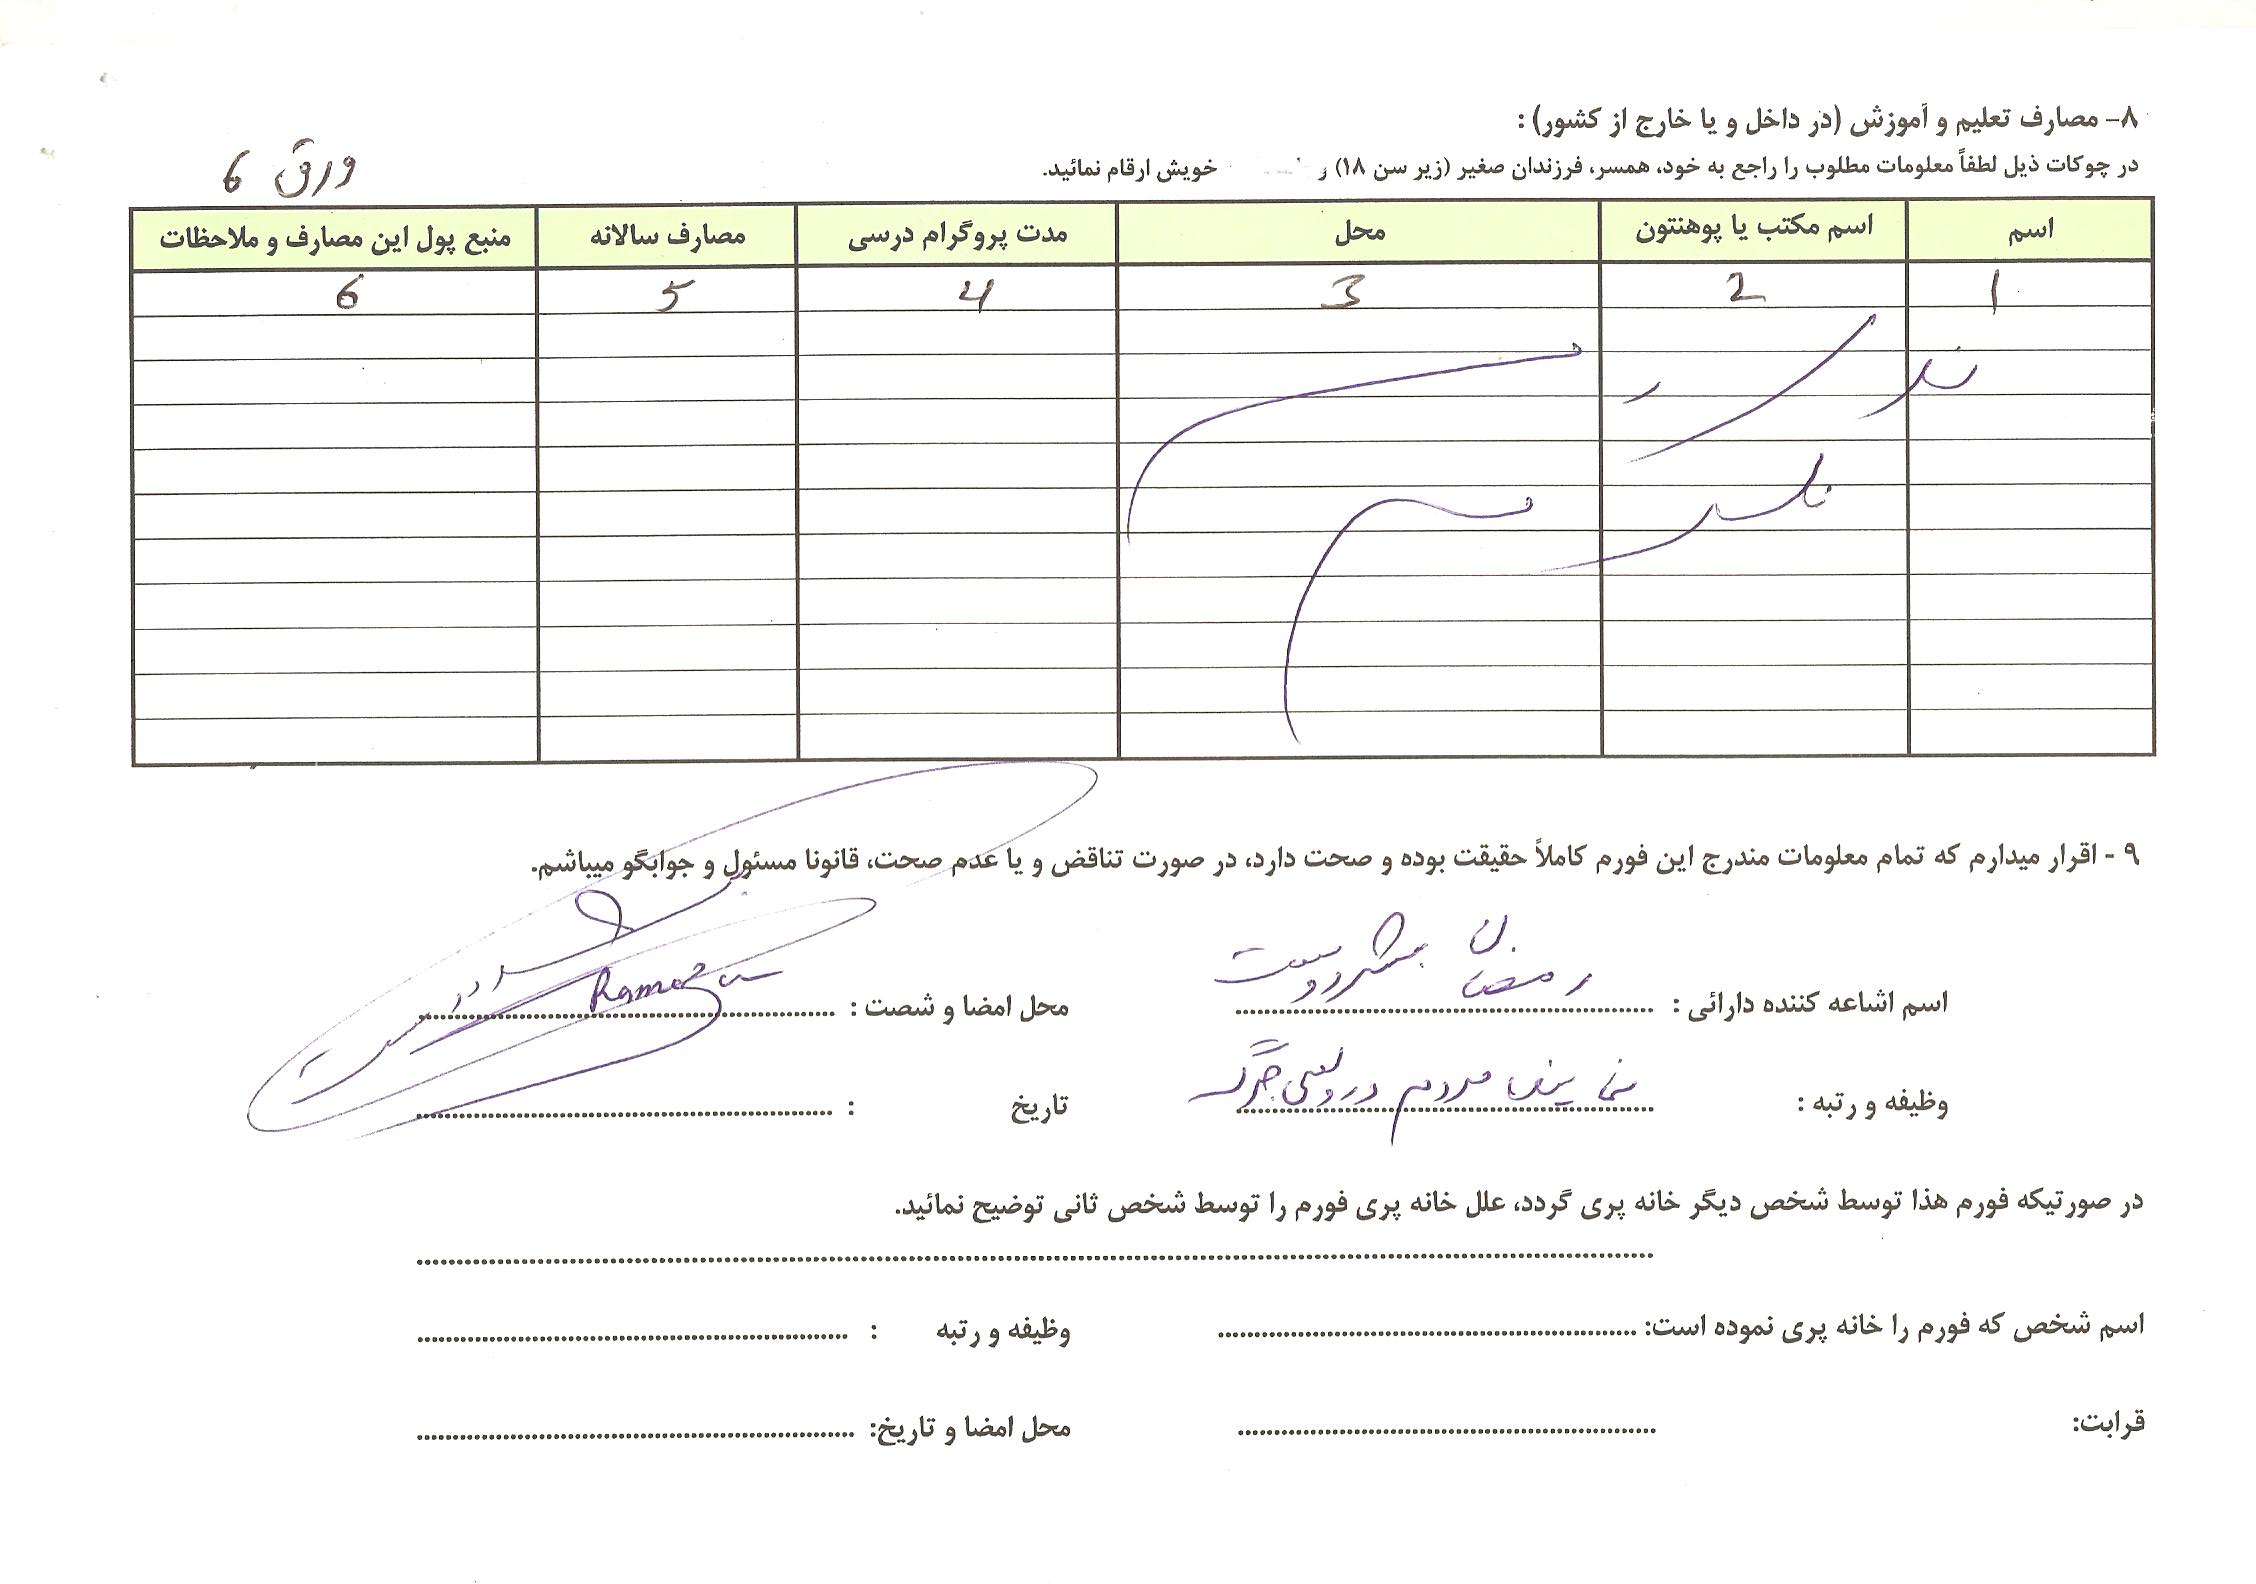 ۸- مصارف تعلیم و آموزش (در داخل و یا خارج از کشور) :
در چوکات ذیل لطفاً معلومات مطلوب را راجع به خود، همسر، فرزندان صغیر (زیر سن ۱۸) و خویش ارقام نمائید.
ورق 6
اسم اسم مکتب یا پوهنتون محل مدت پروگرام درسی مصارف سالانه منبع پول این مصارف و ملاحظات
1 2 3 4 5 6
۹ - اقرار میدارم که تمام معلومات مندرج این فورم کاملاً حقیقت بوده و صحت دارد، در صورت تناقض و یا عدم صحت، قانونا مسئول و جوابگو میباشم.
اسم اشاعه کننده دارائی : رمضان بشردوست محل امضا و شصت : Ramazan
وظیفه و رتبه : نماینده مردم در ولسی جرگه تاریخ :
در صورتیکه فورم هذا توسط شخص دیگر خانه پری گردد، علل خانه پری فورم را توسط شخص ثانی توضیح نمائید.
اسم شخص که فورم را خانه پری نموده است: وظیفه و رتبه :
قرابت: محل امضا و تاریخ: